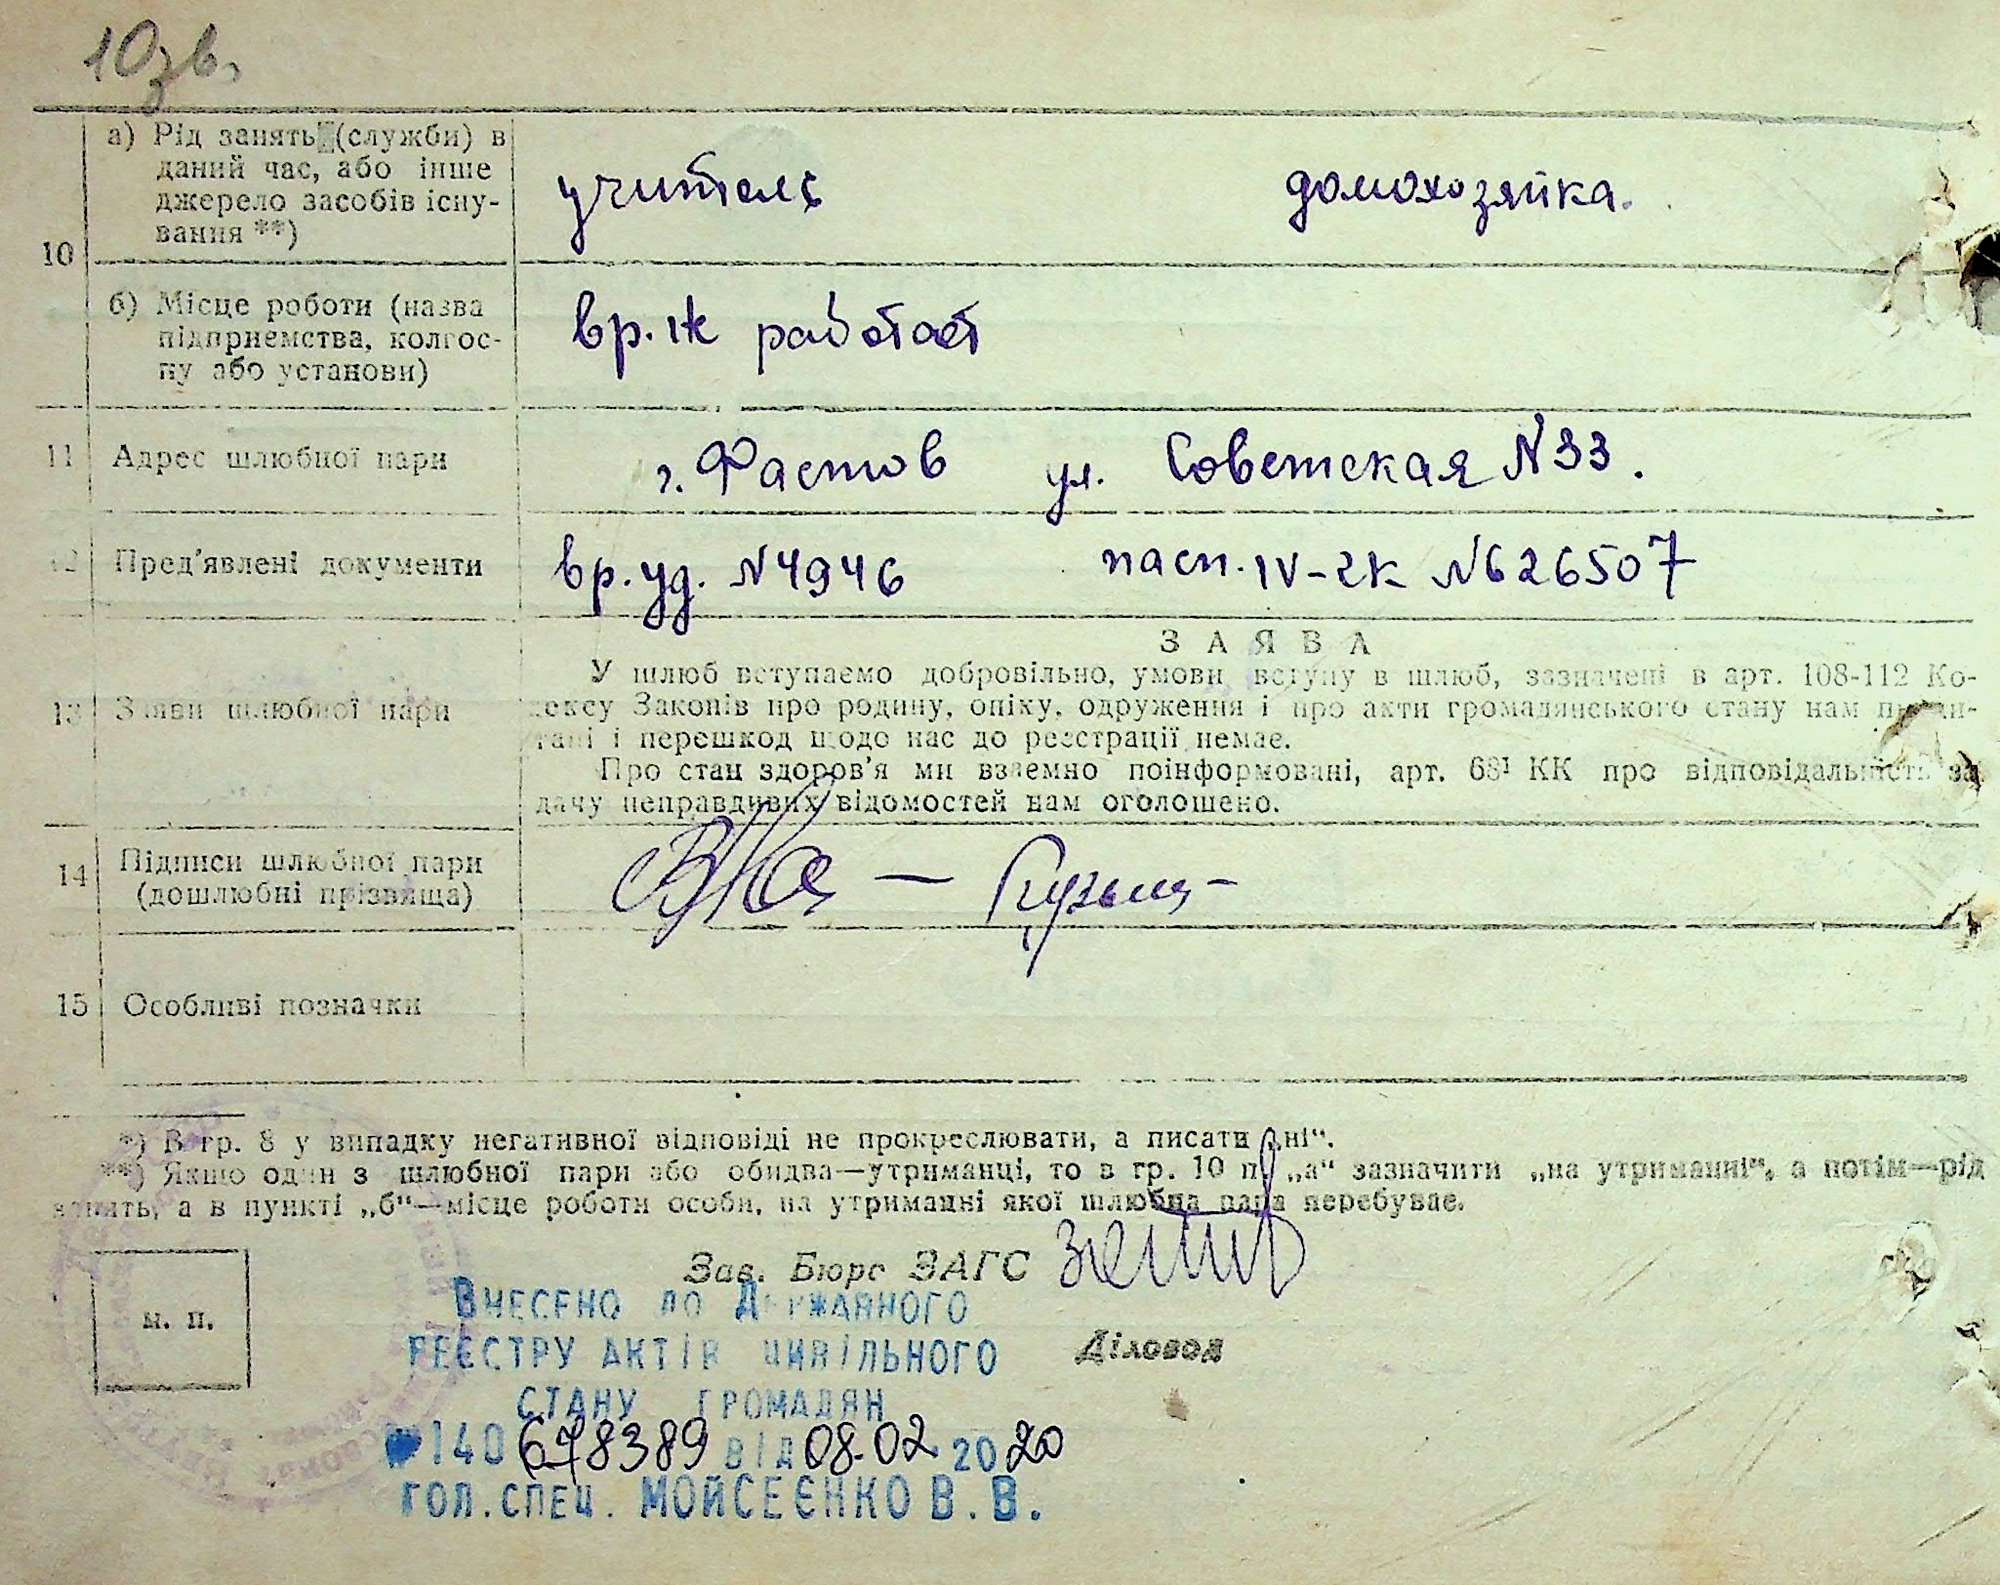 10зв.
а) Рід занять (служби) в
даний час, або інше
джерело засобів існу-
вання **)
учитель
домохозяйка.
10
б) Місце роботи (назва
підприємства, колгос-
пу або установи)
вр. не работает
11 Адрес шлюбної пари
г. Фастов ул. Советская N 33.
12 Пред'явлені документи
вр. уд. N 4946 пасп. IV-2К N 626507
ЗАЯВА
13 Заяви шлюбної пари
У шлюб вступаємо добровільно, умови вступу в шлюб, зазначені в арт. 108-112 Ко-
дексу Законів про родину, опіку, одруження і про акти громадянського стану нам прочи-
тані і перешкод щодо нас до реєстрації немає.
Про стан здоров'я ми взаємно поінформовані, арт. 68¹ КК про відповідальність за
дачу неправдивих відомостей нам оголошено.
14 Підписи шлюбної пари
(дошлюбні прізвища)
15 Особливі позначки
*) В гр. 8 у випадку негативної відповіді не прокреслювати, а писати „ні“.
**) Якщо один з шлюбної пари або обидва—утриманці, то в гр. 10 п. „а“ зазначити „на утриманні“, а потім—рід
занять, а в пункті „б“—місце роботи особи, на утриманні якої шлюбна пара перебуває.
Зав. Бюро ЗАГС
м. п.
Внесено до Державного
реєстру актів цивільного
Діловод
стану громадян
№ 140 678389 від 08.02 2020
гол. спец. МОЙСЕЄНКО В. В.